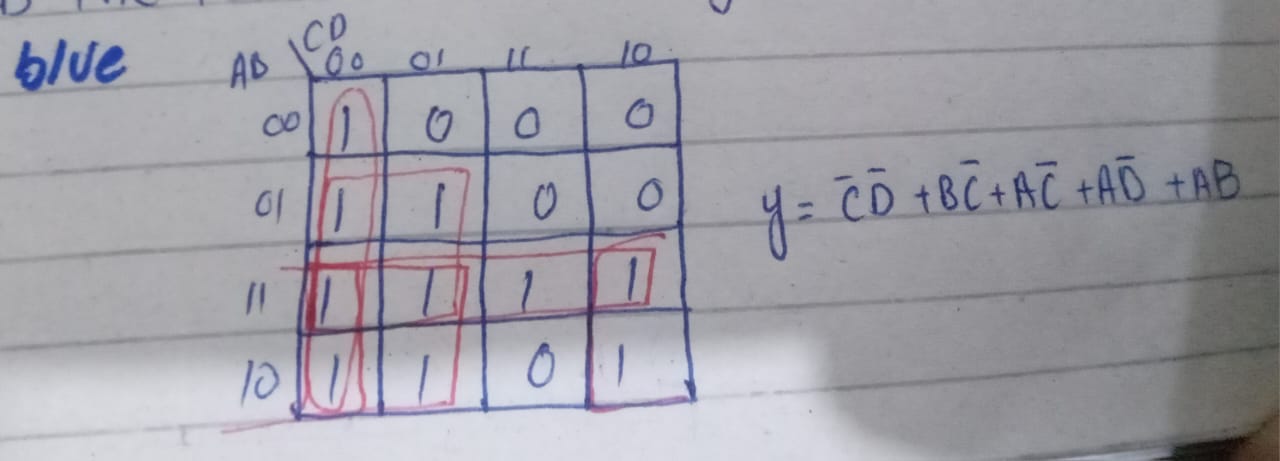 blue
AB \ CD
00 01 11 10
00 1 0 0 0
01 1 1 0 0
11 1 1 1 1
10 1 1 0 1
y = C̄D̄ + BC̄ + AC̄ + AD̄ + AB